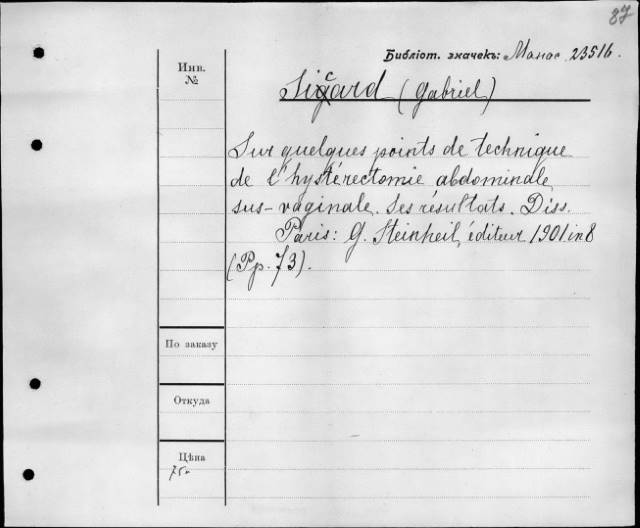 87
Библіот. значекъ: Манас. 23516.
Инв.
№
Sicard (Gabriel)
Sur quelques points de technique
de l'hystérectomie abdominale
sus-vaginale. Ses résultats. Diss.
Paris: G. Steinheil, éditeur 1901 in 8
(Pp. 73).
По заказу
Откуда
Цѣна
75к